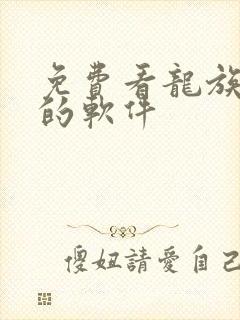 免費看龍族
的軟件
傻妞請愛自己